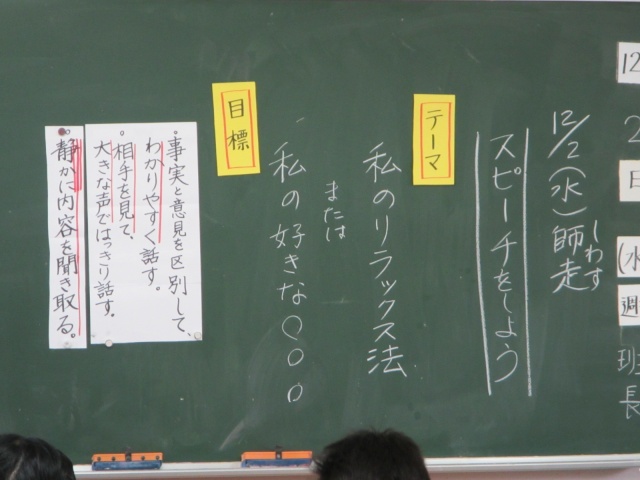 12
2
日
(水
週
班
長
12/2(水)師走
しわす
スピーチをしよう
テーマ
私のリラックス法
または
私の好きな○○○
目標
・事実と意見を区別して、
わかりやすく話す。
・相手を見て、
大きな声ではっきり話す。
・静かに内容を聞き取る。